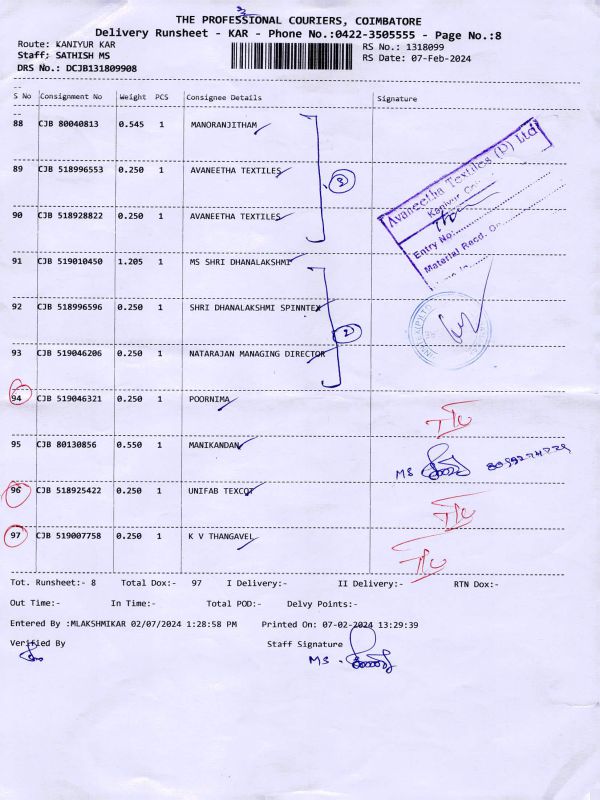 THE PROFESSIONAL COURIERS, COIMBATORE
Delivery Runsheet - KAR - Phone No.:0422-3505555 - Page No.:8
Route: KANIYUR KAR
Staff: SATHISH MS
DRS No.: DCJB131809908
RS No.: 1318099
RS Date: 07-Feb-2024
S No Consignment No Weight PCS Consignee Details Signature
88 CJB 80040813 0.545 1 MANORANJITHAM
89 CJB 518996553 0.250 1 AVANEETHA TEXTILES
3
90 CJB 518928822 0.250 1 AVANEETHA TEXTILES
Avaneetha Textiles (P) Ltd
Kaniyur
Entry No:
Material Recd. On
91 CJB 519010450 1.205 1 MS SHRI DHANALAKSHMI
92 CJB 518996596 0.250 1 SHRI DHANALAKSHMI SPINNTEX
2
93 CJB 519046206 0.250 1 NATARAJAN MANAGING DIRECTOR
94 CJB 519046321 0.250 1 POORNIMA
95 CJB 80130856 0.550 1 MANIKANDAN
MS
96 CJB 518925422 0.250 1 UNIFAB TEXCOT
97 CJB 519007758 0.250 1 K V THANGAVEL
Tot. Runsheet:- 8 Total Dox:- 97 I Delivery:- II Delivery:- RTN Dox:-
Out Time:- In Time:- Total POD:- Delvy Points:-
Entered By :MLAKSHMIKAR 02/07/2024 1:28:58 PM Printed On: 07-02-2024 13:29:39
Verified By Staff Signature
MS